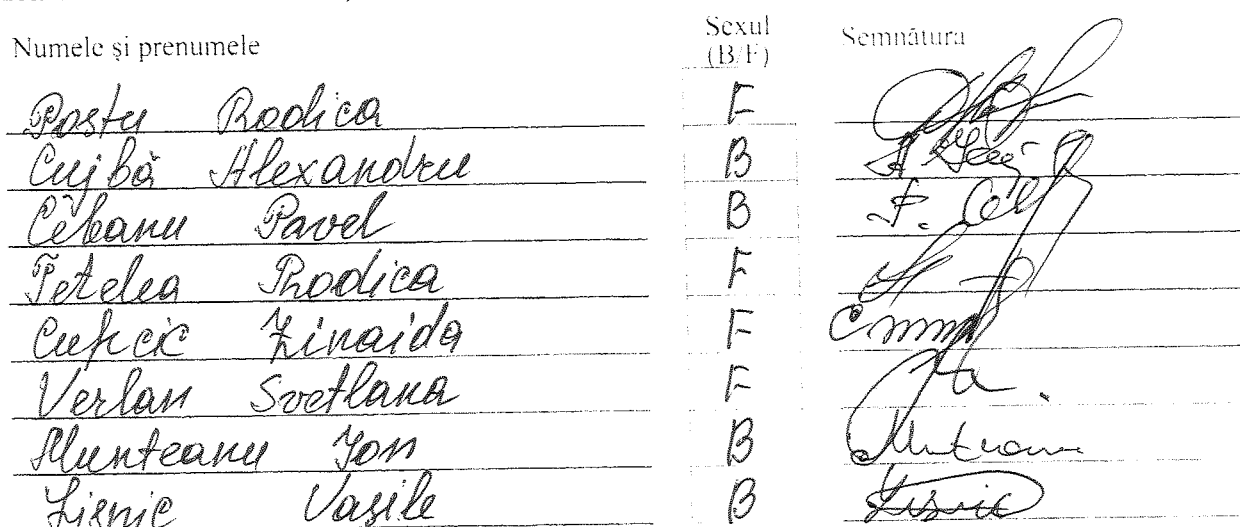 Numele și prenumele Sexul (B/F) Semnătura
Postu Rodica F
Cujbă Alexandru B
Cebanu Pavel B
Petelea Rodica F
Zinaida F
Verlan Svetlana F
Munteanu Ion B
Lisnic Vasile B Lisnic